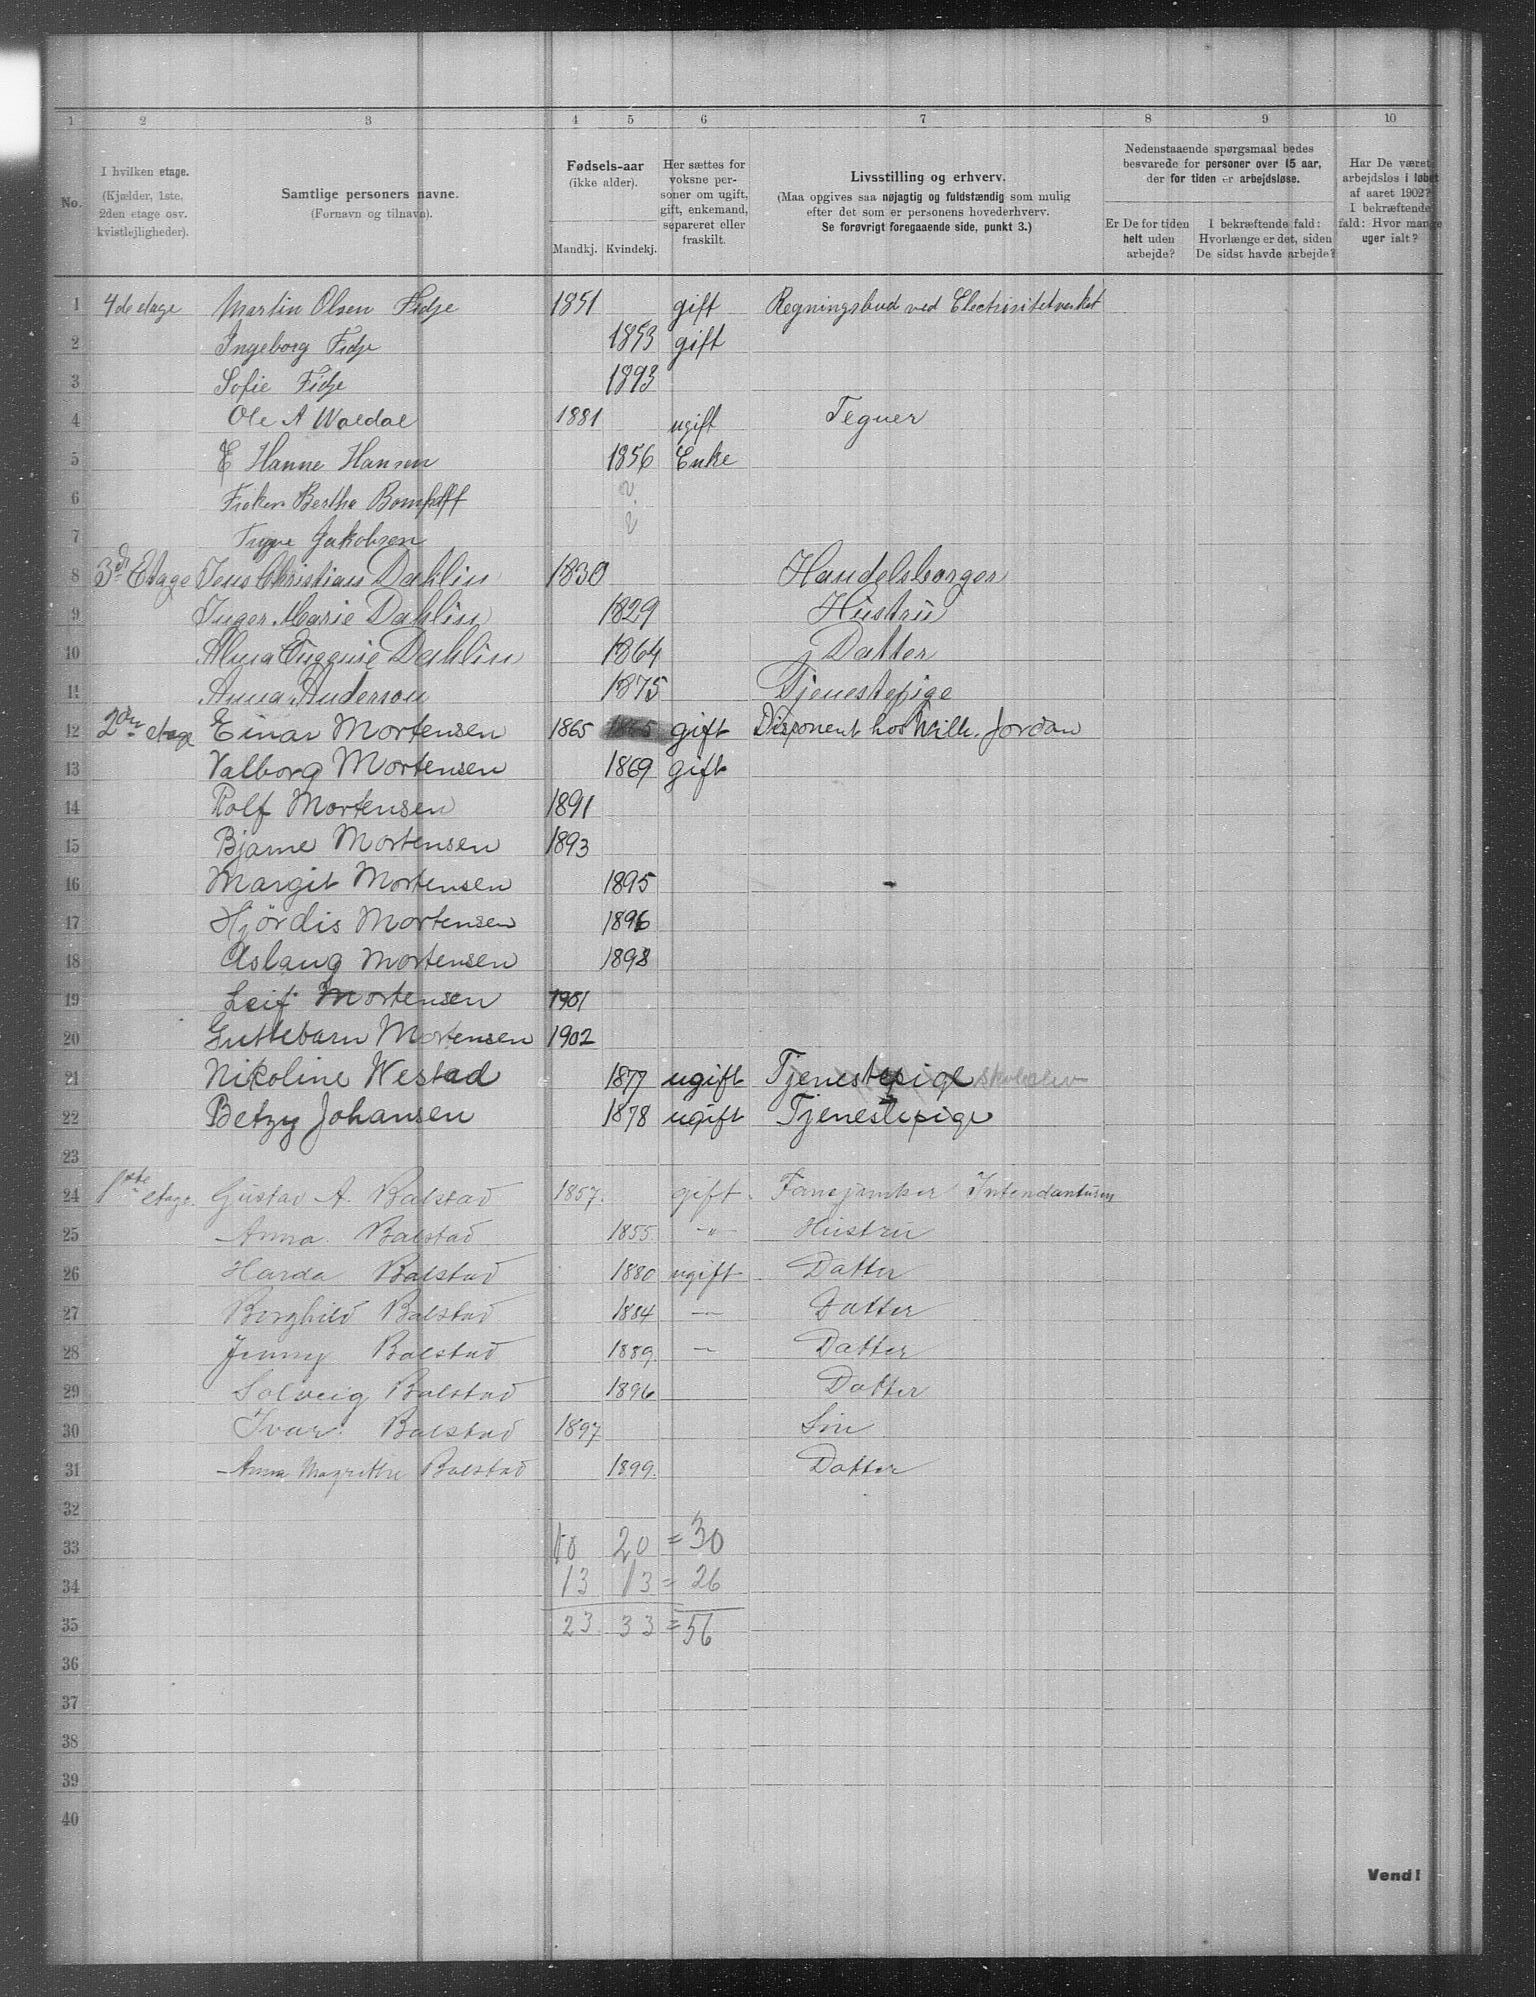 1 2 3 4 5 6 7 8 9 10
No.
I hvilken etage.
(Kjælder, 1ste,
2den etage osv.
kvistlejligheder).
Samtlige personers navne.
(Fornavn og tilnavn).
Fødsels-aar
(ikke alder).
Mandkj. Kvindekj.
Her sættes for
voksne per-
soner om ugift,
gift, enkemand,
separeret eller
fraskilt.
Livsstilling og erhverv.
(Maa opgives saa nøjagtig og fuldstændig som mulig
efter det som er personens hovederhverv.
Se forøvrigt foregaaende side, punkt 3.)
Nedenstaaende spørgsmaal bedes
besvarede for personer over 15 aar,
der for tiden er arbejdsløse.
Er De for tiden
helt uden
arbejde?
I bekræftende fald:
Hvorlænge er det, siden
De sidst havde arbejde?
Har De været
arbejdsløs i løbet
af aaret 1902?
I bekræftende
fald: Hvor mange
uger ialt?
1 4de etage Martin Olsen Fidje 1851 gift Regningsbud ved Electrisitetverket
2 Ingeborg Fidje 1853 gift
3 Sofie Fidje 1893
4 Ole A Waldal 1881 ugift Tegner
5 E Hanne Hansen 1856 Enke
6 Bertha ?
7 Jakobsen ?
8 3de Etage Jens Christian Dahlin 1830 Handelsborger
9 Inger Marie Dahlin 1829 Hustru
10 Alma Eugenie Dahlin 1864 Datter
11 Anna Anderson 1875 Tjenestepige
12 2den etage Einar Mortensen 1865 1865 gift Disponent hos Wilh. Jordan
13 Valborg Mortensen 1869 gift
14 Rolf Mortensen 1891
15 Bjarne Mortensen 1893
16 Margit Mortensen 1895
17 Hjördis Mortensen 1896
18 Aslaug Mortensen 1898
19 Leif Mortensen 1901
20 Guttebarn Mortensen 1902
21 Nikoline Westad 1877 ugift Tjenestepige Skoleelev
22 Betzy Johansen 1878 ugift Tjenestepige
23
24 1ste etage. Gustav A. Balstad 1857. gift. Fanejunker Intendanturen
25 Anna. Balstad 1855. -"- Hustru
26 Harda Balstad 1880 ugift Datter
27 Borghild Balstad 1884 — Datter
28 Jenny Balstad 1889. — Datter
29 Solveig Balstad 1896 Datter
30 Ivar. Balstad 1897 Sön
31 Anna Magrethe Balstad 1899. Datter
32
33 10 20 = 30
34 13 13 = 26
35 23 33 = 56
36
37
38
39
40
Vend!